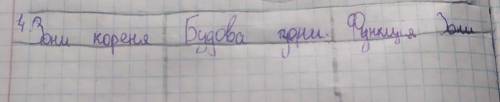 4. Зони кореня Будова зони. Функція Зони